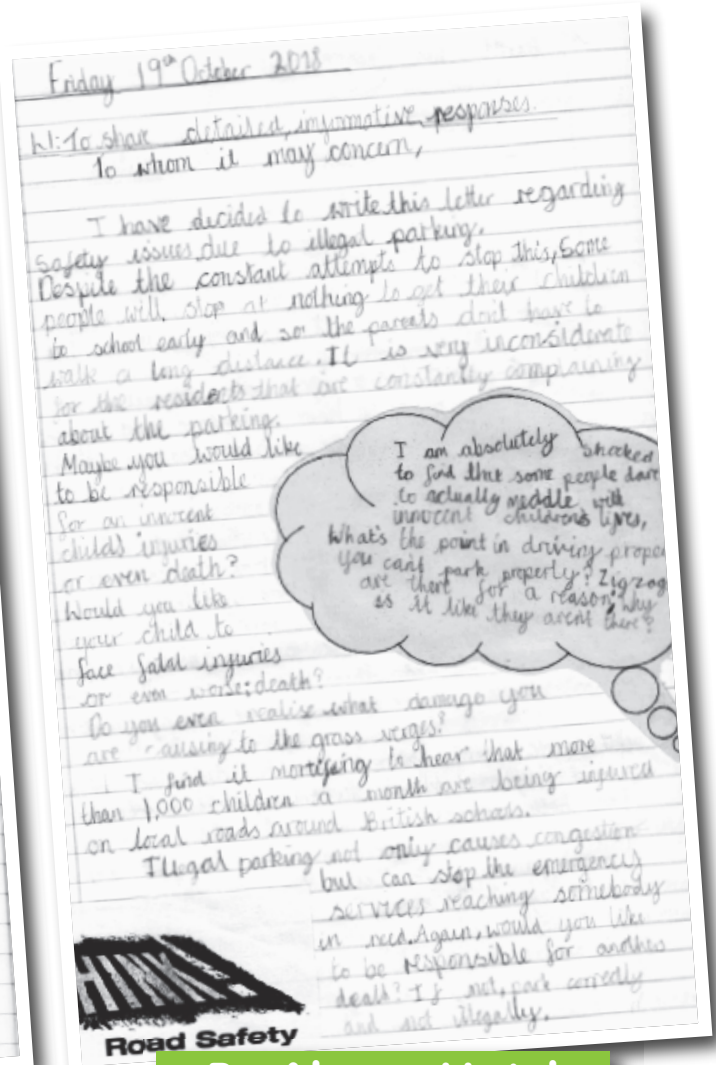 Friday 19th October 2018
LI: To share detailed, informative responses.
To whom it may concern,
I have decided to write this letter regarding
safety issues due to illegal parking.
Despite the constant attempts to stop this, Some
people will stop at nothing to get their children
to school early and so the parents don't have to
walk a long distance. It is very inconsiderate
for the residents that are constantly complaining
about the parking.
Maybe you would like
to be responsible
for an innocent
childs injuries
or even death?
Would you like
your child to
face fatal injuries
or even worse; death?
Do you even realise what damage you
are causing to the grass verges?
I find it mortifying to hear that more
than 1,000 children a month are being injured
on local roads around British schools.
Illegal parking not only causes congestion
but can stop the emergency
services reaching somebody
in need. Again, would you like
to be responsible for another
death? If not, park correctly
and not illegally.
I am absolutely shocked
to find that some people dare
to actually meddle with
innocent childrens lives,
What's the point in driving
you cant park properly? Zigzag
are there for a reason, why
is it like they arent there?
THINK!
Road Safety